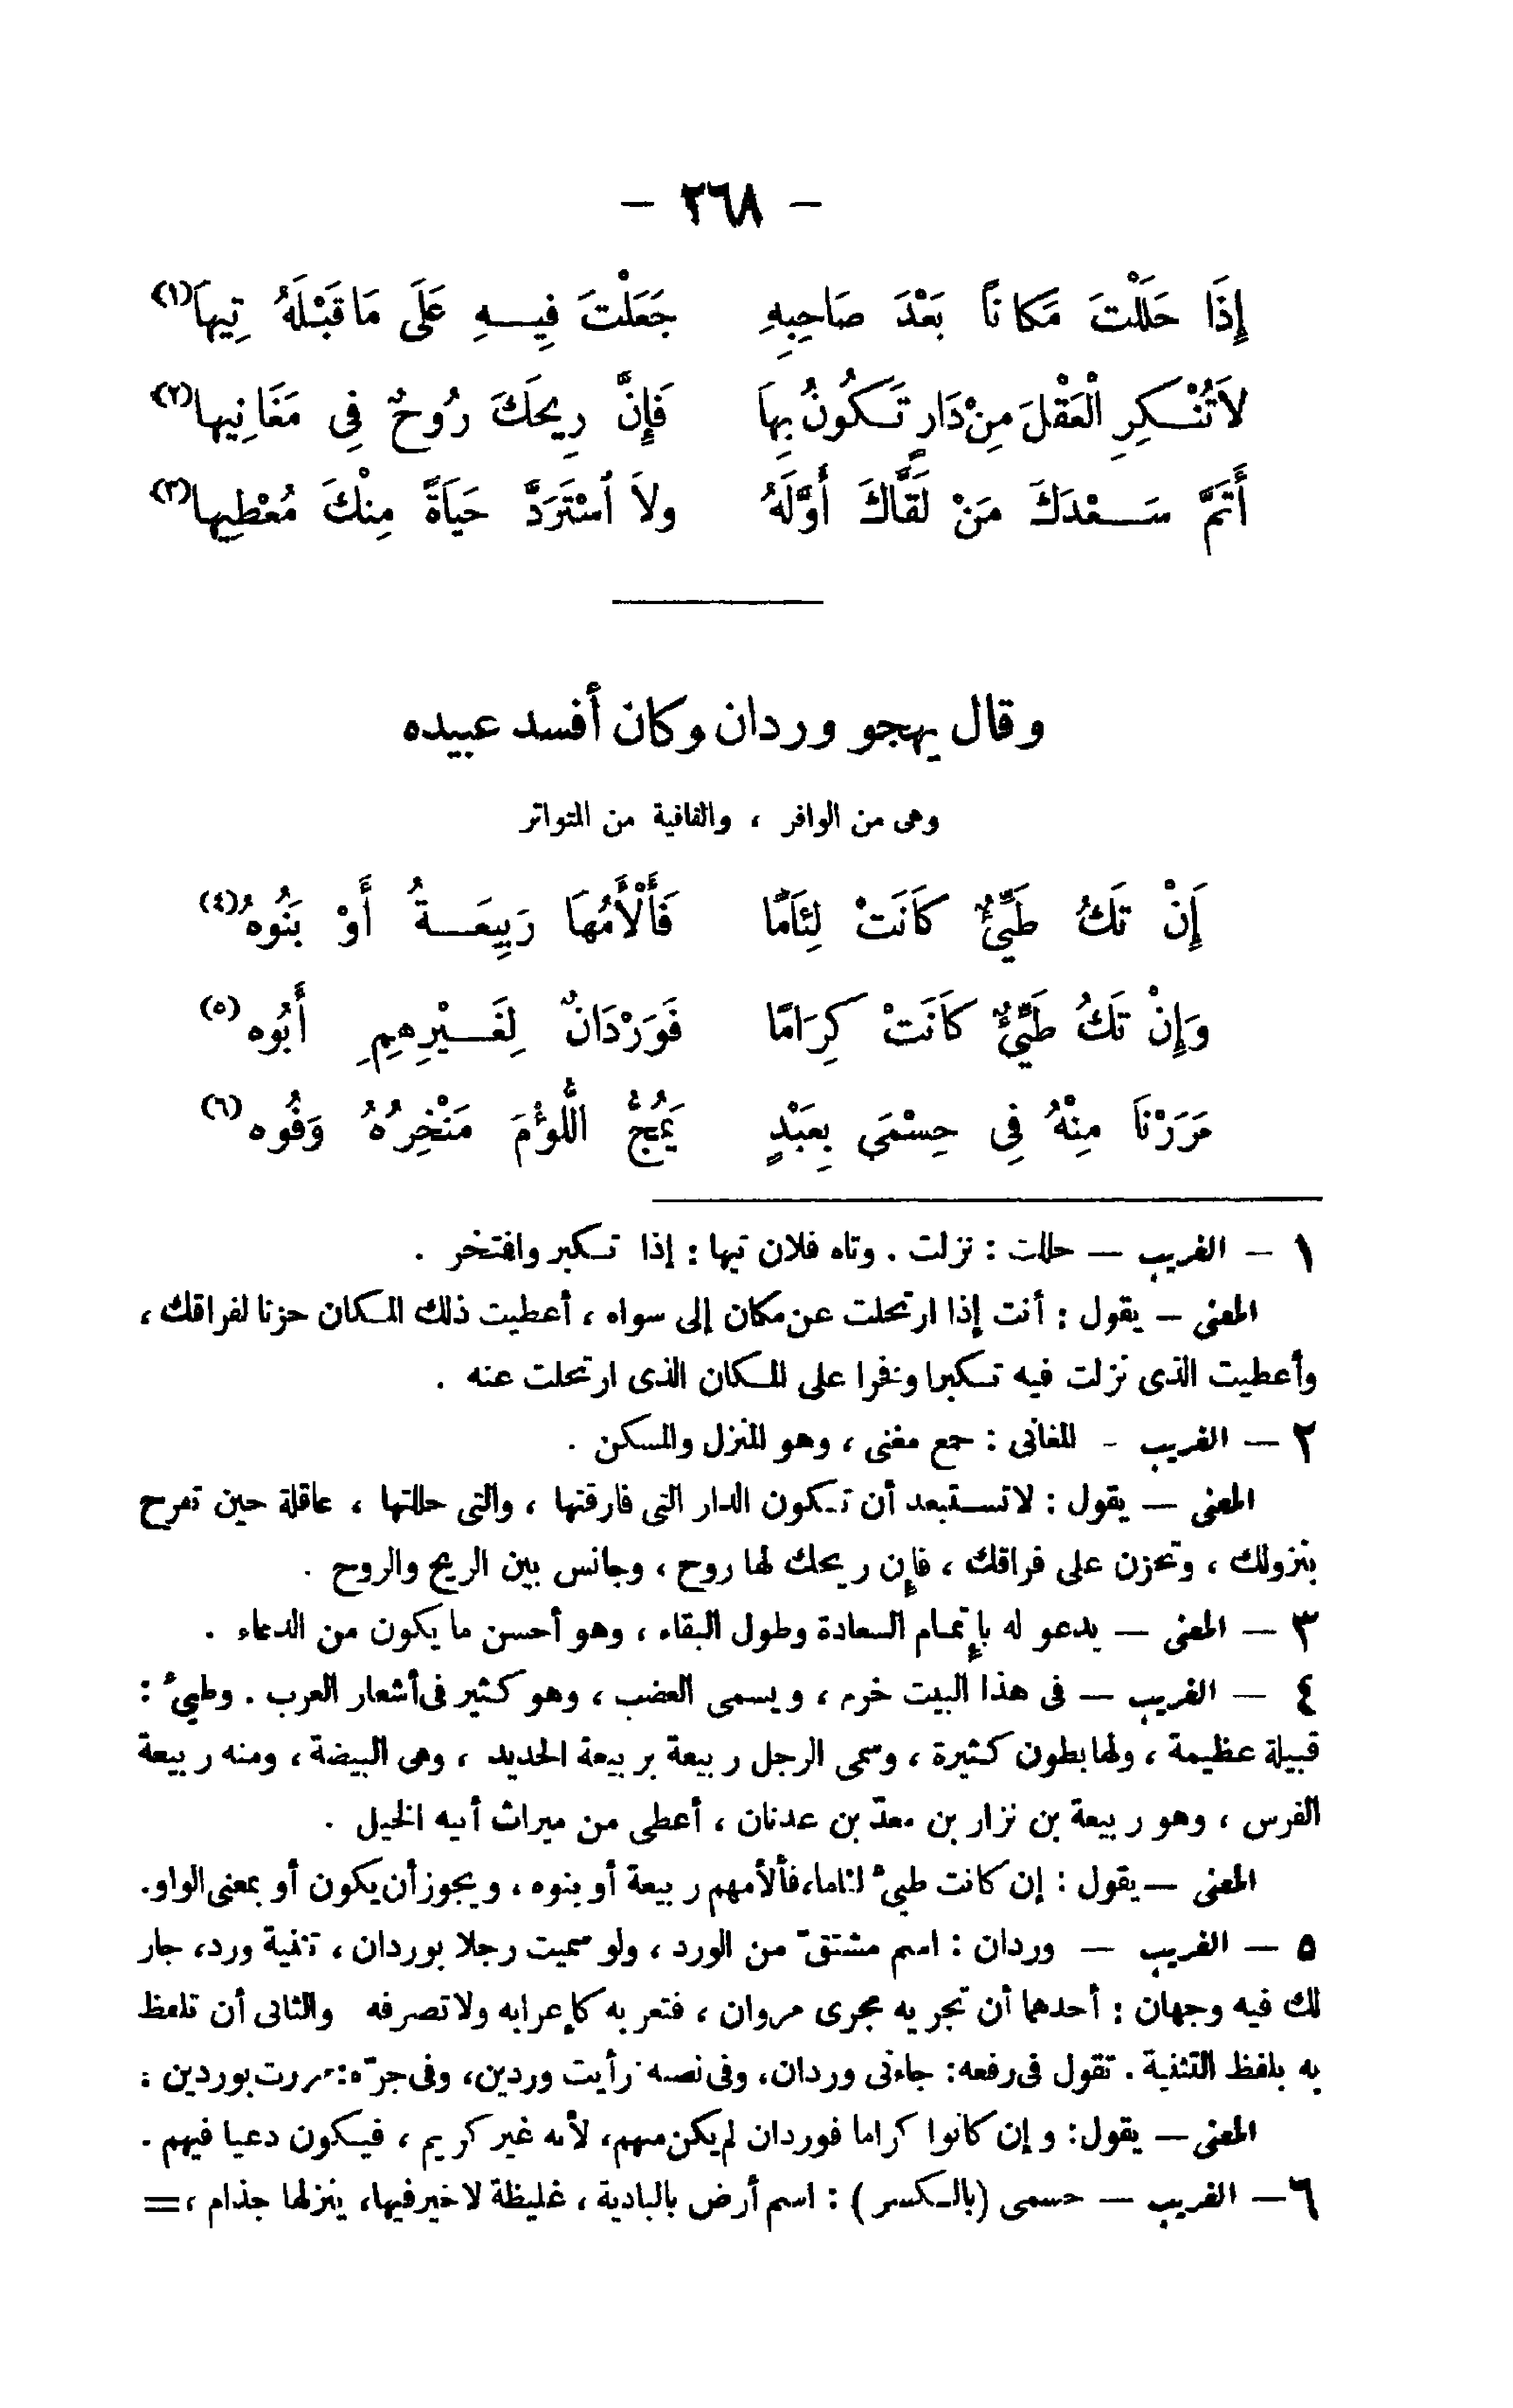 — ٢٦٨ —
إِذَا حَلَلْتَ مَكانًا بَعْدَ صَاحِبِهِ جَعَلْتَ فِيــهِ عَلَى مَاقَبْلَهُ تِيهَا(١)
لاَتُنْـكِرِ الْعَقْلَ مِنْ دَارٍ تَـكُونُ بِهَا فَإِنَّ رِيحَكَ رُوحٌ فِى مَغَانِيها(٢)
أَتَمَّ سَــعْدَكَ مَنْ لَقَّاكَ أَوَّلَهُ ولاَ اُسْتَرَدَّ حَيَاةً مِنْكَ مُعْطِيها(٣)
وقال يهجو وردان وكان أفسد عبيده
وهى من الوافر ، والقافية من المتواتر
إِنْ تَكُ طَيِّئٌ كَانَتْ لِئَامًا فَأَلْأَمُهَا رَبِيعَــةُ أَوْ بَنُوهُ(٤)
وَإِنْ تَكُ طَيِّئٌ كَانَتْ كِرَامًا فَوَرْدَانٌ لِغَــيْرِهِمِ أَبُوه(٥)
مَرَرْنَا مِنْهُ فِى حِسْمَي بِعَبْدٍ يَمُجُّ اللُّؤْمَ مَنْخِرُهُ وَفُوه(٦)
١ — الغريب — حللت : نزلت . وتاه فلان تيها : إذا تـكبر وافتخر .
المعنى — يقول : أنت إذا ارتحلت عن مكان إلى سواه ، أعطيت ذلك المـكان حزنا لفراقك ،
وأعطيت الذى نزلت فيه تـكبرا وفخرا على المـكان الذى ارتحلت عنه .
٢ — الغريب - المغانى : جمع مغنى ، وهو المنزل والمسكن .
المعنى — يقول : لاتستبعد أن تـكون الدار التى فارقتها ، والتى حللتها ، عاقلة حين تفرح
بنزولك ، وتحزن على فراقك ، فإن ريحك لها روح ، وجانس بين الريح والروح .
٣ — المعنى — يدعو له بإتمام السعادة وطول البقاء ، وهو أحسن ما يكون من الدعاء .
٤ — الغريب — فى هذا البيت خرم ، ويسمى العضب ، وهو كثير فى أشعار العرب . وطيئ :
قبيلة عظيمة ، ولها بطون كثيرة ، وسمى الرجل ربيعة بربيعة الحديد ، وهى البيضة ، ومنه ربيعة
الفرس ، وهو ربيعة بن نزار بن معدّ بن عدنان ، أعطى من ميراث أبيه الخيل .
المعنى — يقول : إن كانت طيئ لئاما، فألأمهم ربيعة أو بنوه ، ويجوز أن يكون أو بمعنى الواو.
٥ — الغريب — وردان : اسم مشتقّ من الورد ، ولو سميت رجلا بوردان ، تثنية ورد، جاز
لك فيه وجهان : أحدهما أن تجريه مجرى مروان ، فتعربه كإعرابه ولا تصرفه والثانى أن تلفظ
به بلفظ التثنية . تقول فى رفعه: جاءنى وردان، وفى نصبه رأيت وردين، وفى جرّه: مررت بوردين :
المعنى — يقول: وإن كانوا كراما فوردان لم يكن منهم، لأنه غير كريم ، فيـكون دعيا فيهم .
٦ — الغريب — حسمى (بالـكسر ) : اسم أرض بالبادية ، غليظة لا خير فيها، ينزلها جذام ، =